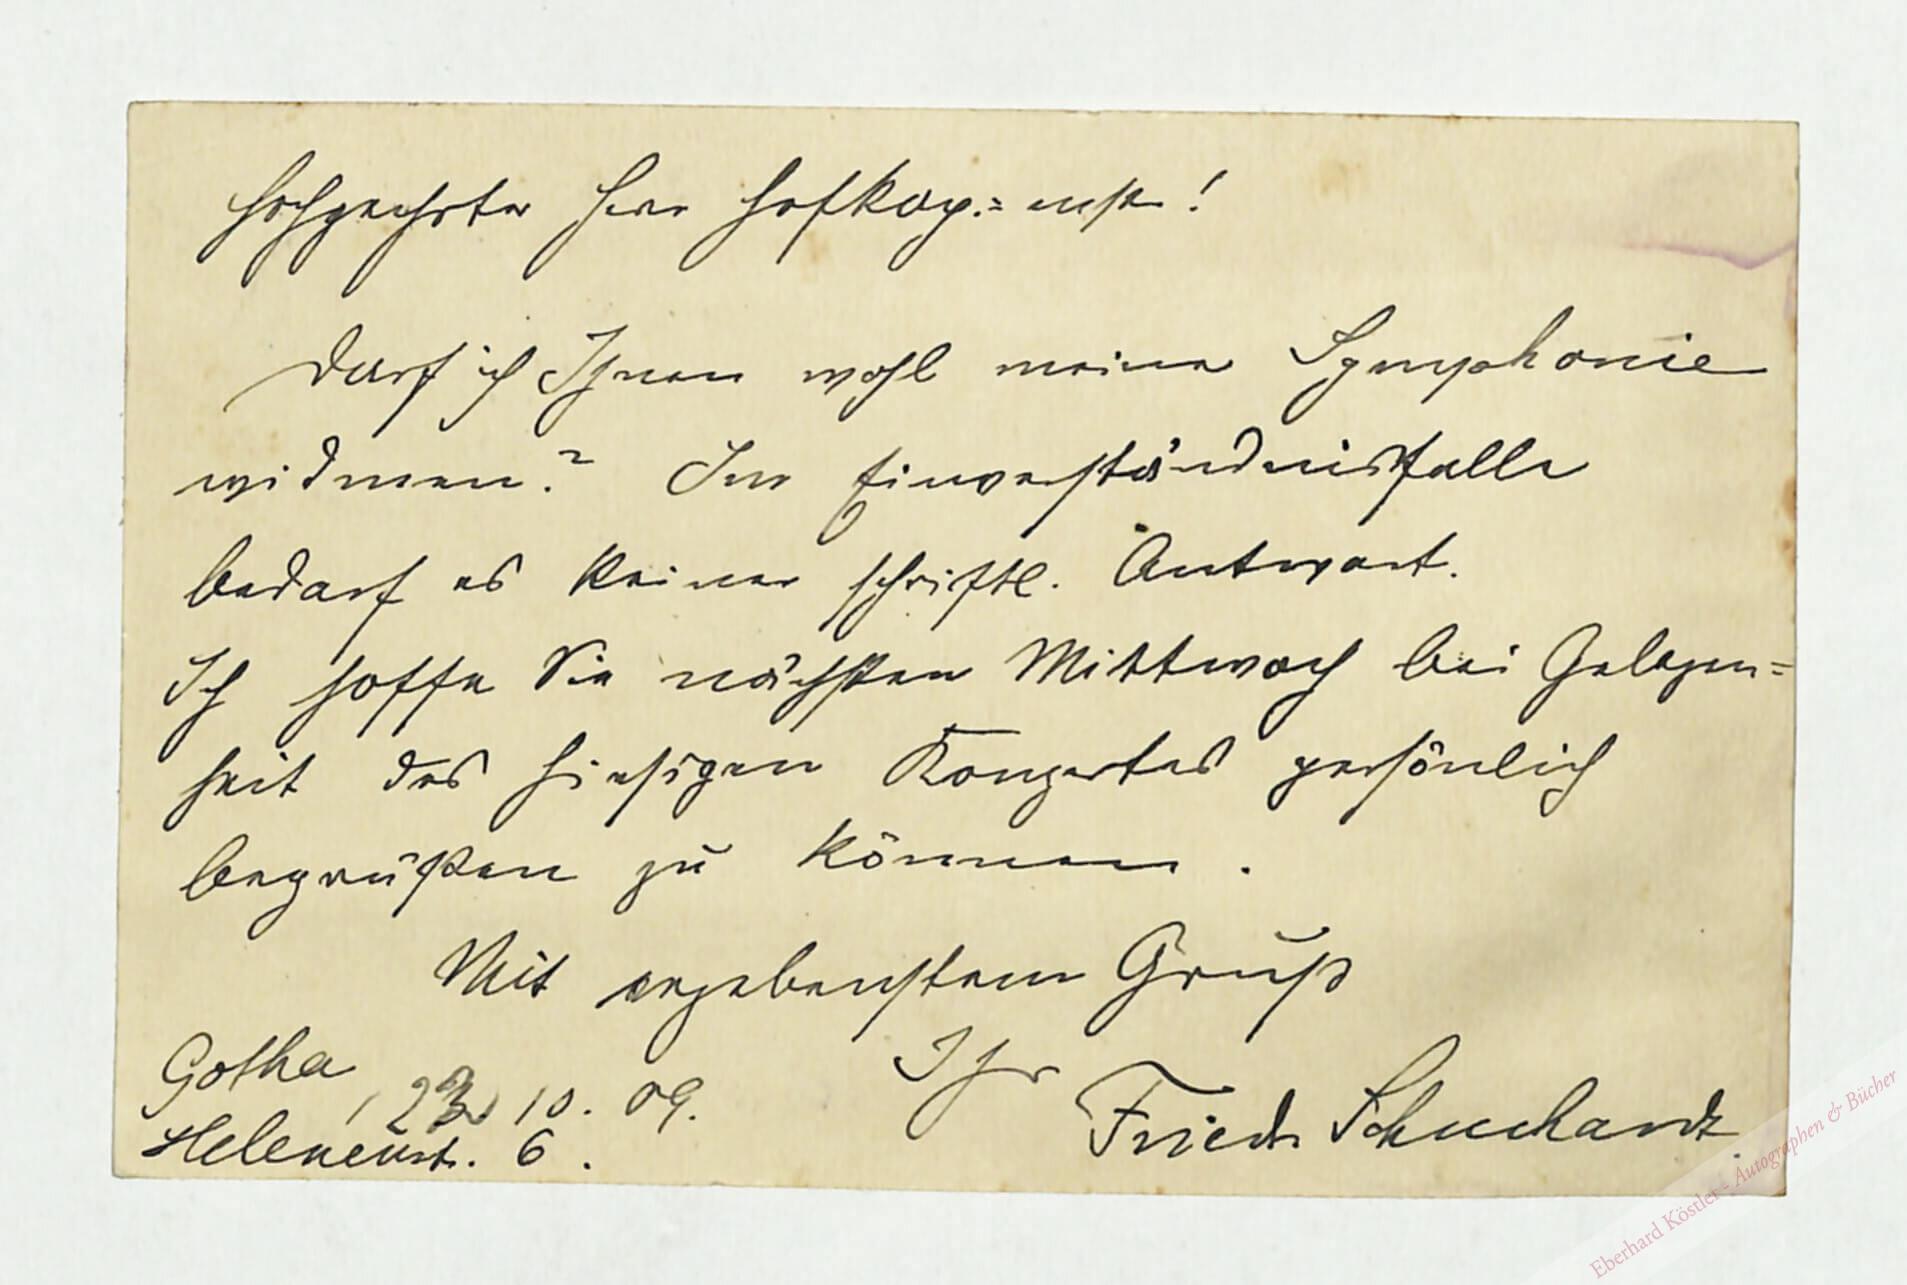 Hochgeehrter Herr Hofkap.=mstr!
Darf ich Ihnen wohl meine Symphonie
widmen? Im Einverständnisfalle
bedarf es keiner schriftl. Antwort.
Ich hoffe Sie nächsten Mittwoch bei Gelegen=
heit des hiesigen Konzertes persönlich
begrüßen zu können.
Mit ergebenstem Gruß
Ihr
Gotha, 23. 10. 09.
Friedr. Schuchardt.
Helenenstr. 6.
Eberhard Köstler - Autographen & Bücher